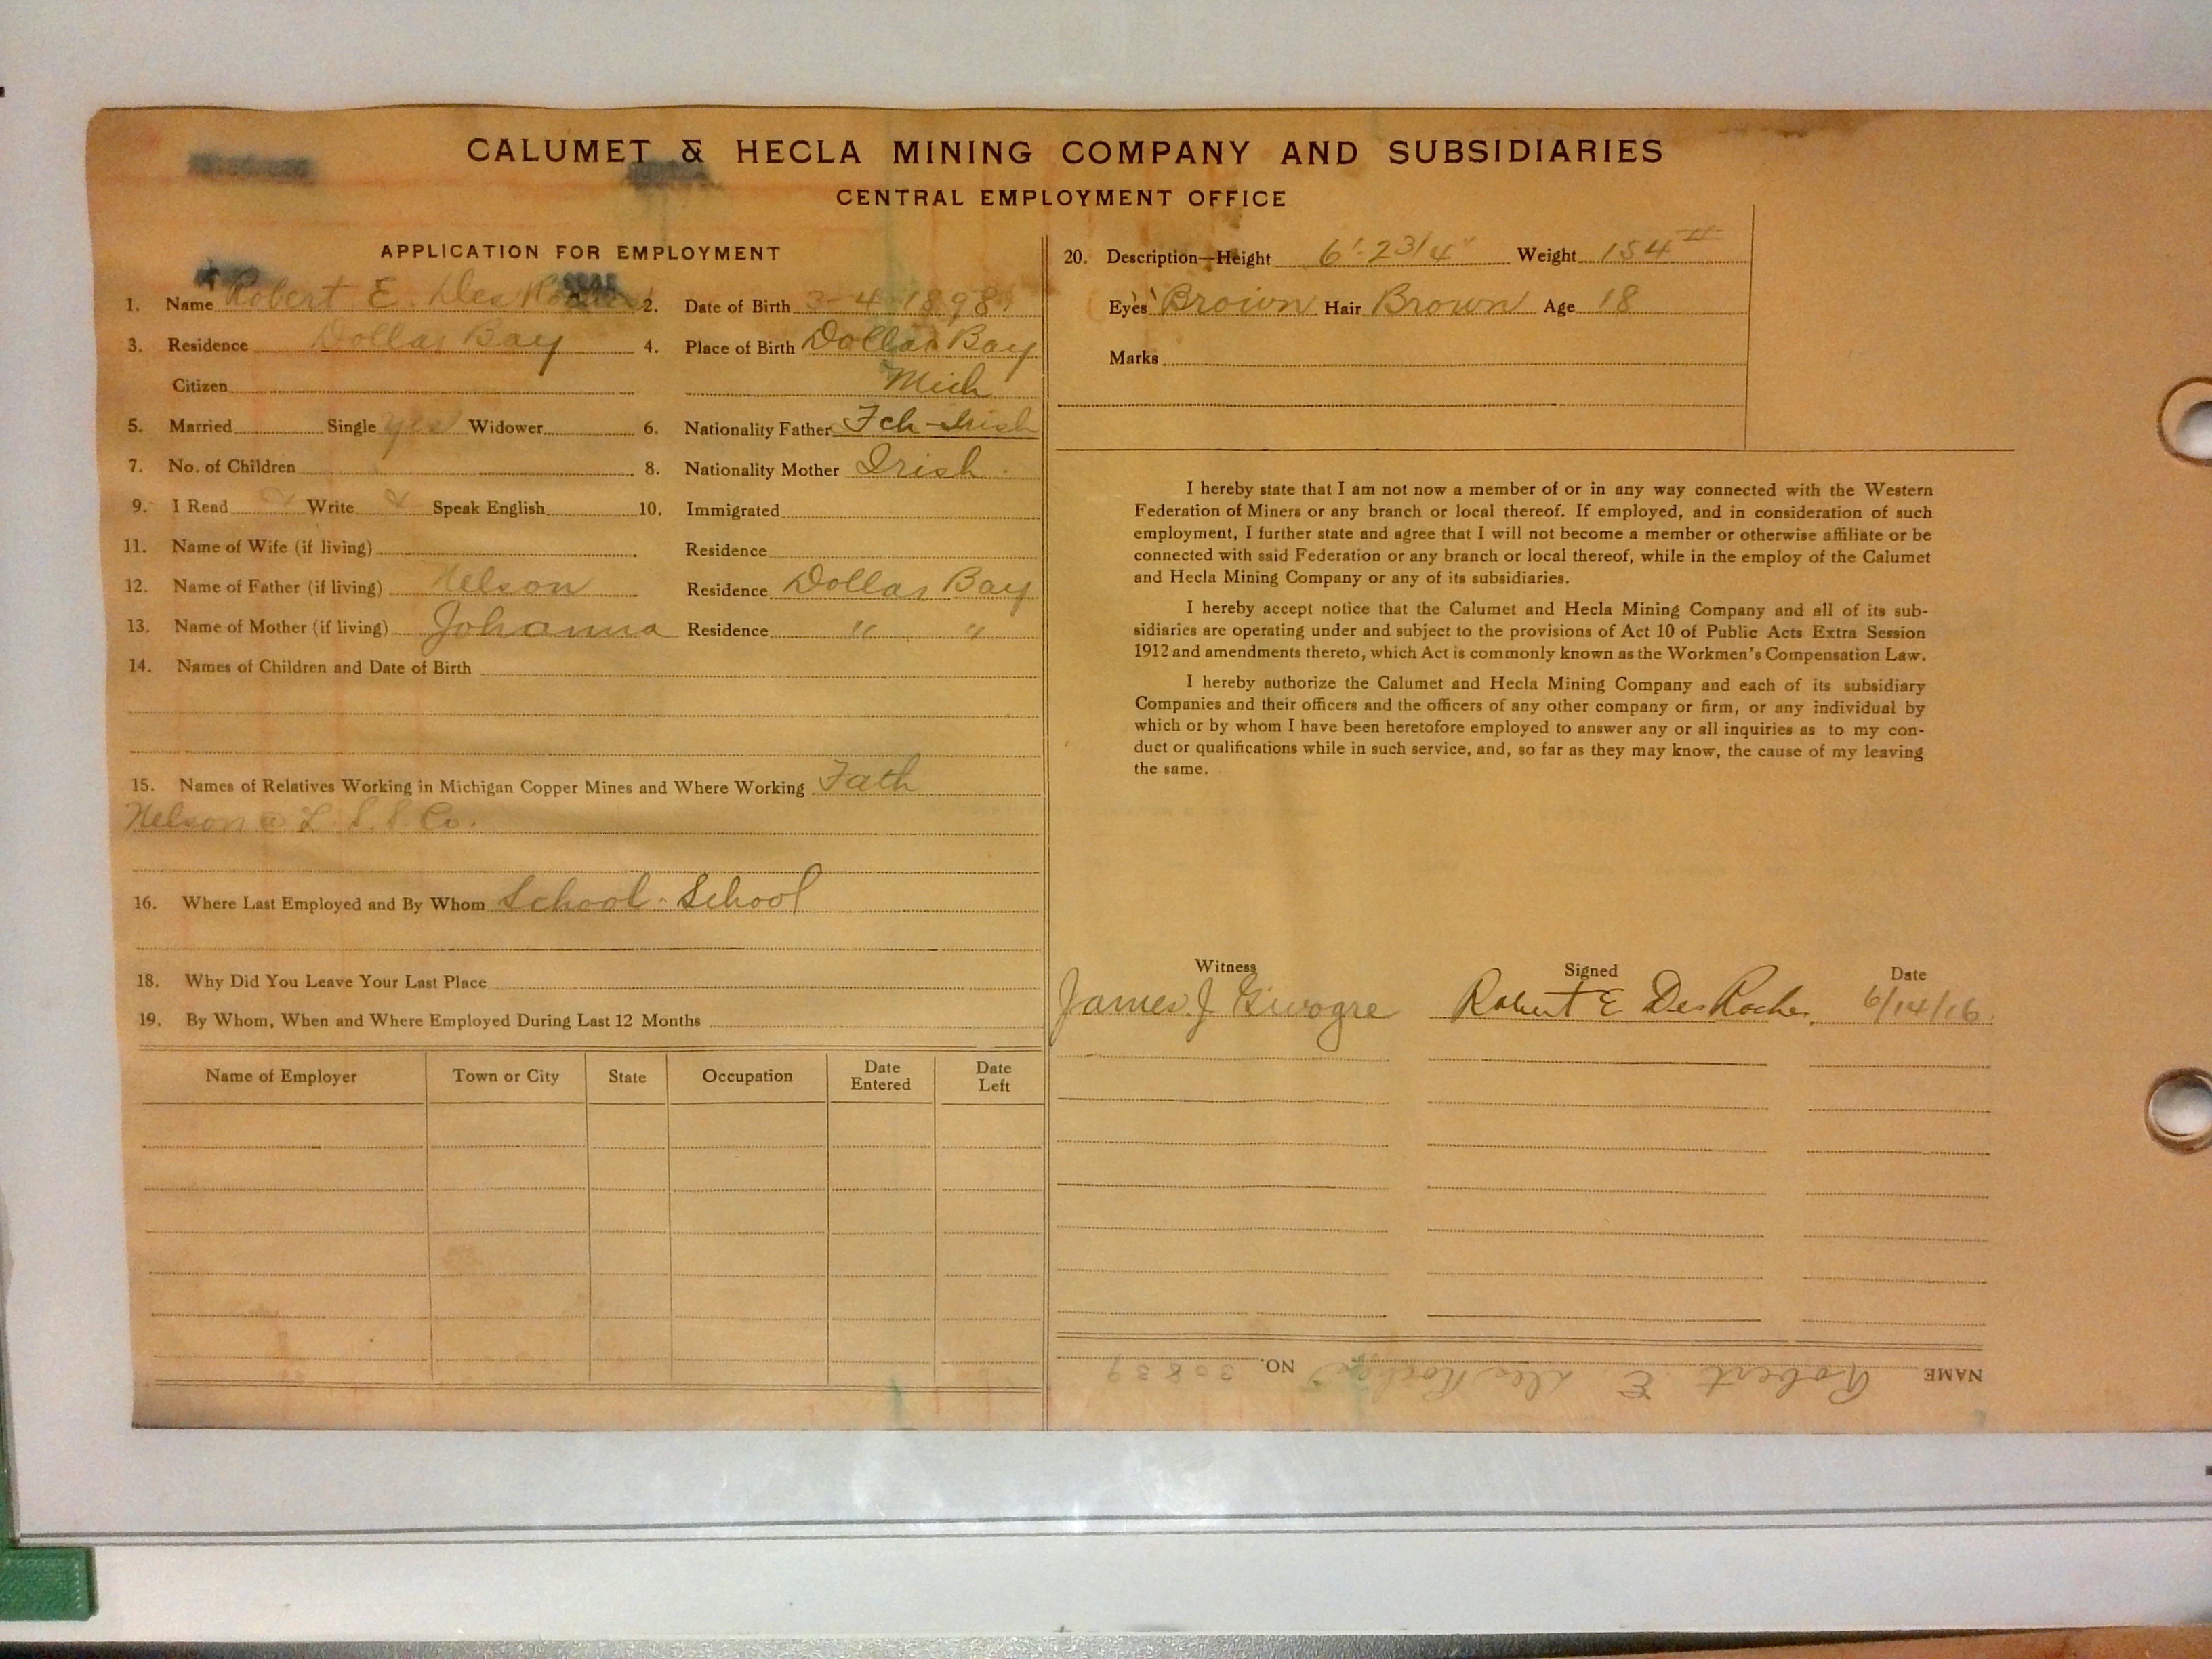 CALUMET & HECLA MINING COMPANY AND SUBSIDIARIES
CENTRAL EMPLOYMENT OFFICE
APPLICATION FOR EMPLOYMENT
1. Name Robert E. Des Rocher 2. Date of Birth 3-4-1898
3. Residence Dollar Bay 4. Place of Birth Dollar Bay
Citizen Mich
5. Married Single yes Widower 6. Nationality Father Fch-Irish
7. No. of Children 8. Nationality Mother Irish
9. I Read Write Speak English 10. Immigrated
11. Name of Wife (if living) Residence
12. Name of Father (if living) Nelson Residence Dollar Bay
13. Name of Mother (if living) Johanna Residence " "
14. Names of Children and Date of Birth
15. Names of Relatives Working in Michigan Copper Mines and Where Working Fath
Nelson @ L. S. S. Co.
16. Where Last Employed and By Whom School - School
18. Why Did You Leave Your Last Place
19. By Whom, When and Where Employed During Last 12 Months
Name of Employer Town or City State Occupation Date Entered Date Left
20. Description—Height 6'-2 3/4" Weight 154 #
Eyes Brown Hair Brown Age 18
Marks
I hereby state that I am not now a member of or in any way connected with the Western
Federation of Miners or any branch or local thereof. If employed, and in consideration of such
employment, I further state and agree that I will not become a member or otherwise affiliate or be
connected with said Federation or any branch or local thereof, while in the employ of the Calumet
and Hecla Mining Company or any of its subsidiaries.
I hereby accept notice that the Calumet and Hecla Mining Company and all of its sub-
sidiaries are operating under and subject to the provisions of Act 10 of Public Acts Extra Session
1912 and amendments thereto, which Act is commonly known as the Workmen's Compensation Law.
I hereby authorize the Calumet and Hecla Mining Company and each of its subsidiary
Companies and their officers and the officers of any other company or firm, or any individual by
which or by whom I have been heretofore employed to answer any or all inquiries as to my con-
duct or qualifications while in such service, and, so far as they may know, the cause of my leaving
the same.
Witness Signed Date
James J. Robert E Des Rocher 6/14/16
NAME Robert E. Des Rocher NO. 30839